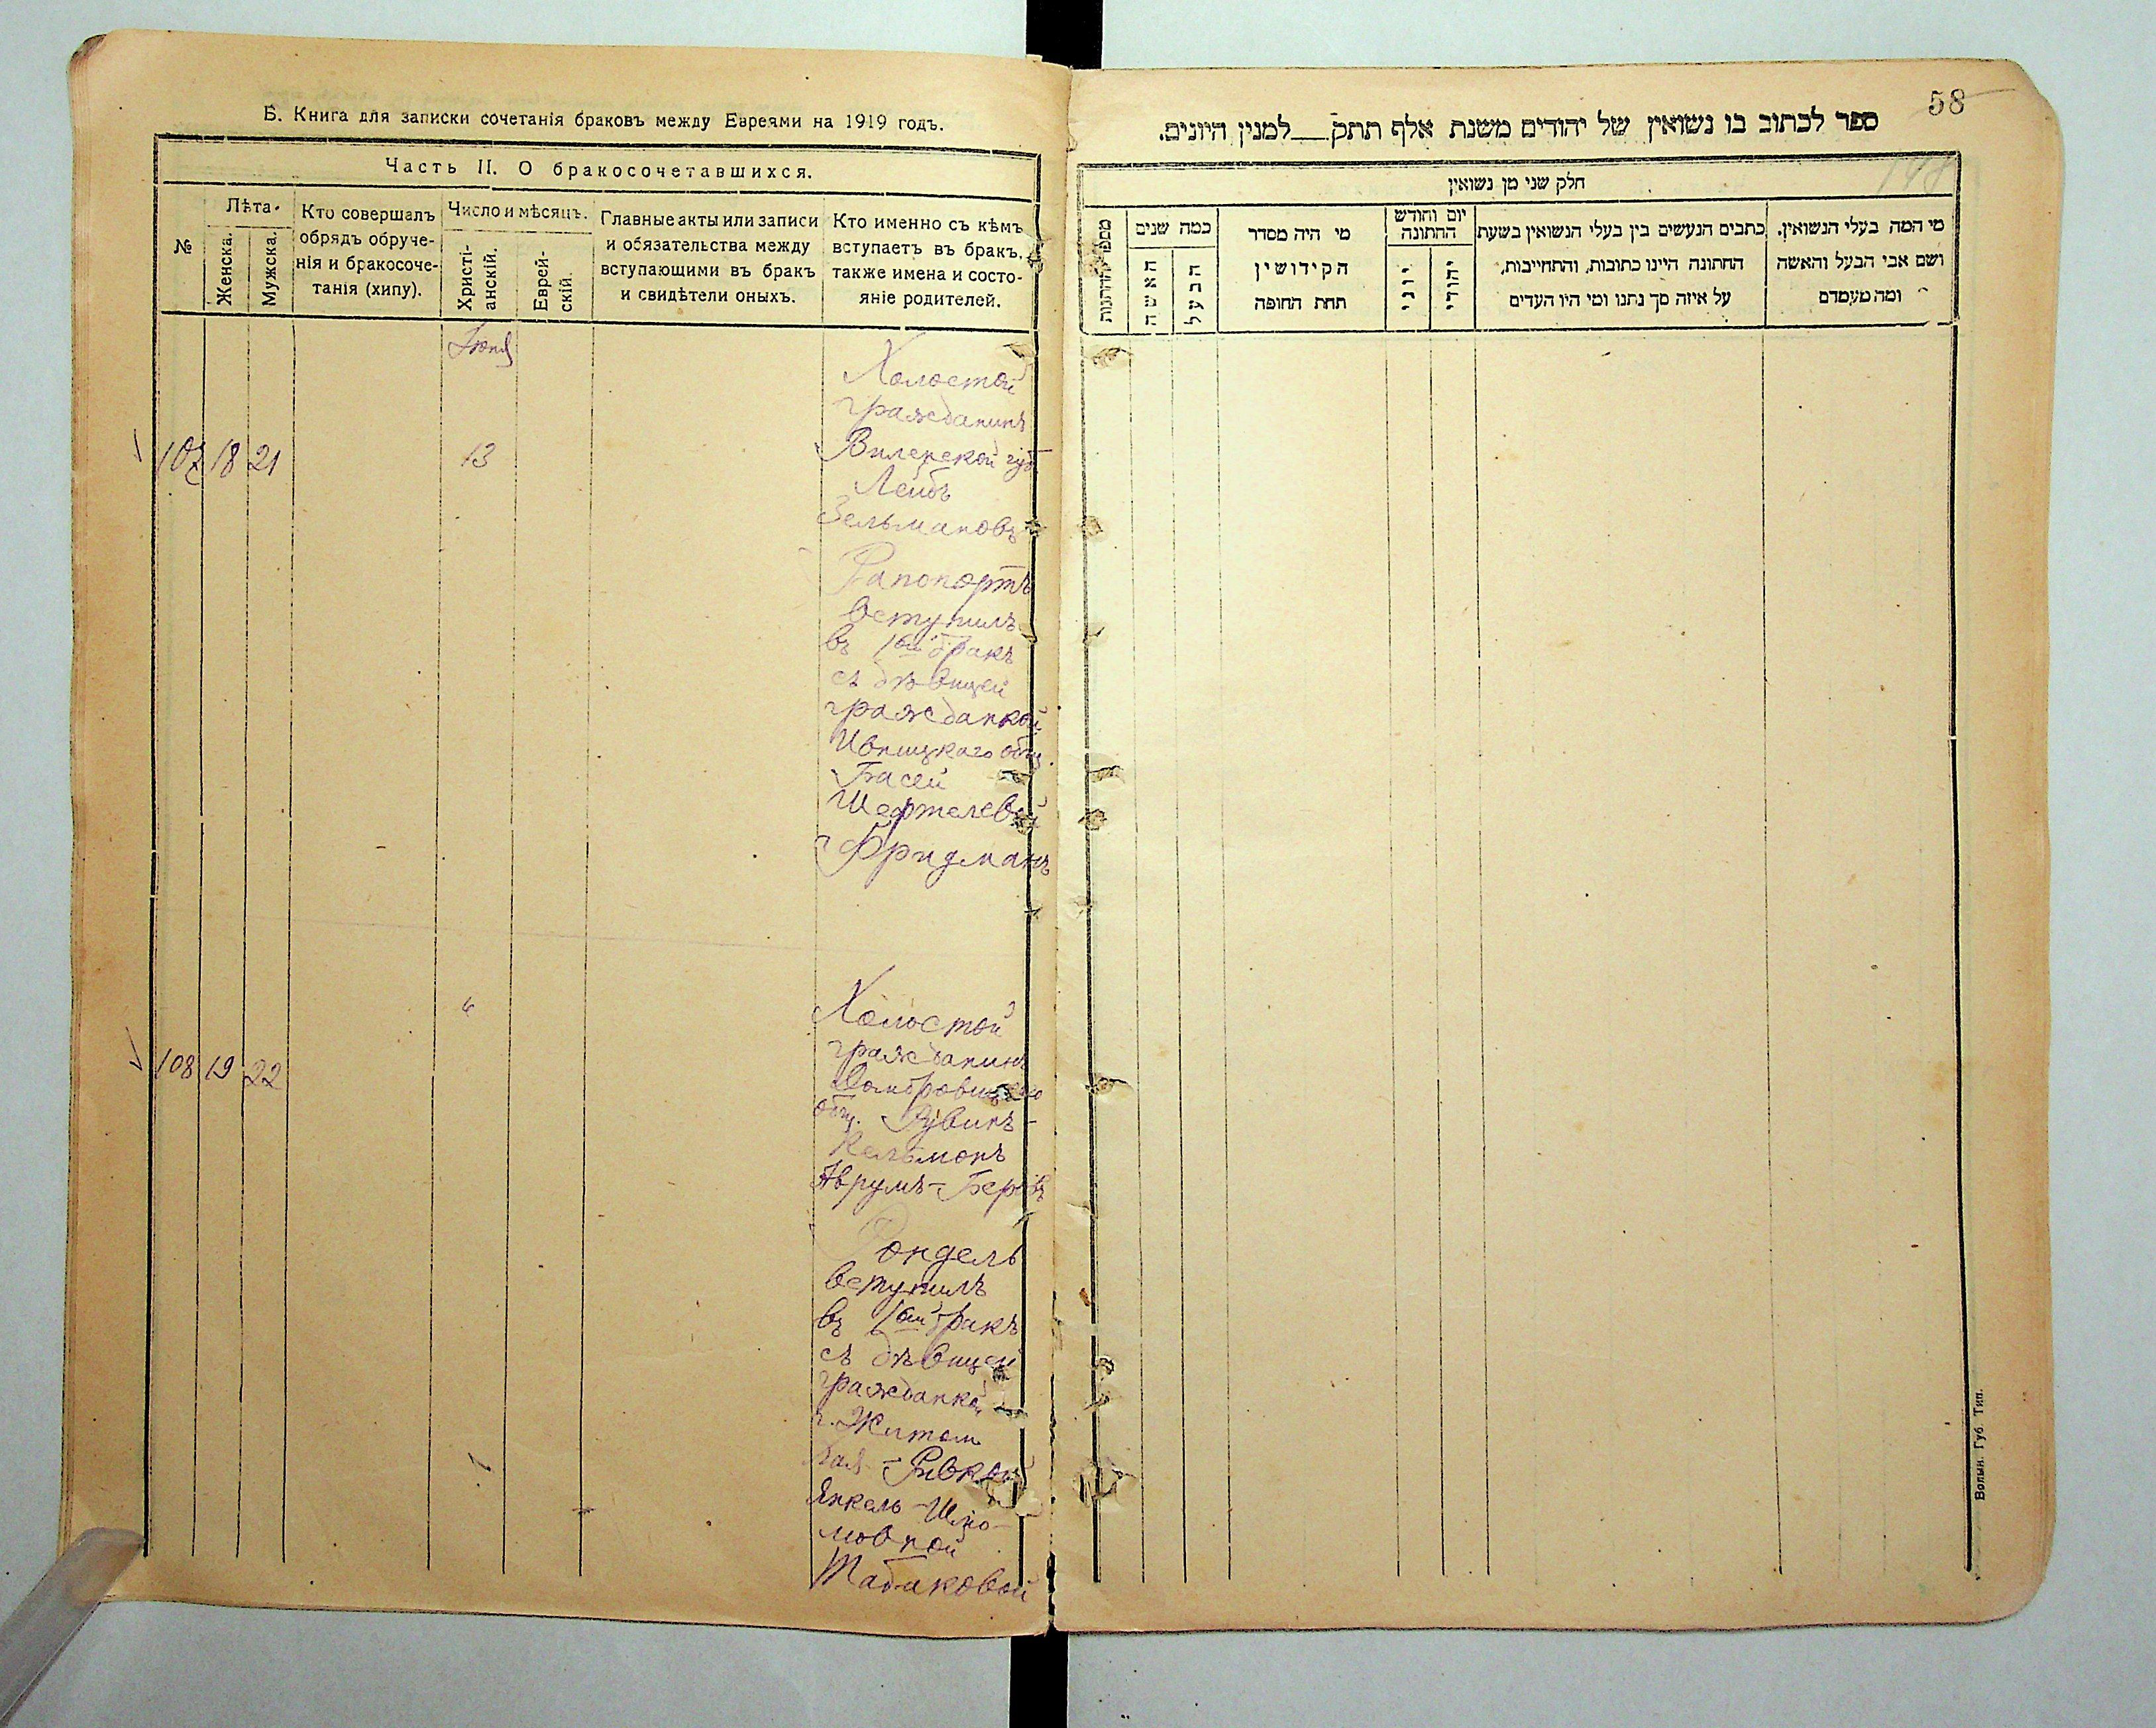 Б. Книга для записки сочетанія браковъ между Евреями на 1919 годъ.
Часть II. О бракосочетавшихся.
№
Лѣта.
Женска.
Мужска.
Кто совершалъ
обрядъ обруче-
нія и бракосоче-
танія (хипу).
Число и мѣсяцъ.
Христі-
анскій.
Еврей-
скій.
Главные акты или записи
и обязательства между
вступающими въ бракъ
и свидѣтели оныхъ.
Кто именно съ кѣмъ
вступаетъ въ бракъ,
также имена и состо-
яніе родителей.
107 18 21
13
Холостой
гражданинъ
Виленской губ
Лейбъ
Зельмановъ
Рапопортъ
вступилъ
въ 1ый бракъ
съ дѣвицей
гражданкой
Ивницкаго общ.
Басей
Шефтелевой
Фридманъ
108 19 22
Холостой
гражданинъ
Домбровицкаго
общ. Рувинъ-
Кельмонъ
Аврумъ-Беровъ
Рондель
вступилъ
въ 1ый бракъ
съ дѣвицей
гражданкой
г. Житом
Ривкой
Янкель-Шло-
мовной
Табаковой
58
ספר לכתוב בו נשואין של יהודים משנת אלף תתק__למנין היונים.
חלק שני מן נשואין
מי המה בעלי הנשואין,
ושם אבי הבעל והאשה
ומה מעמדם
כתבים הנעשים בין בעלי הנשואין בשעת
החתונה היינו כתובות, והתחייבות,
על איזה סך נתנו ומי היו העדים
יום וחודש
החתונה
יהודי
יוני
מי היה מסדר
הקידושין
תחת החופה
כמה שנים
הבעל
האשה
Волын. Губ. Тип.